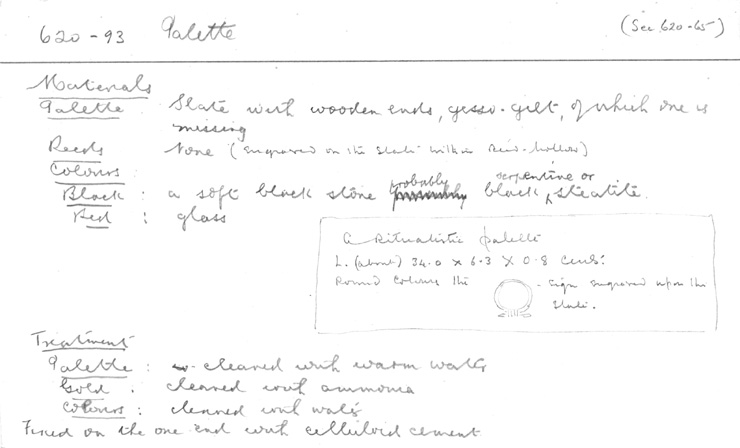 620-93 Palette (See 620-65)
Materials
Palette Slate with wooden ends, gesso-gilt, of which one is
missing
Reeds None (engraved on the slate within reed-hollow)
Colours
Black : a soft black stone probably black serpentine or steatite.
Red : glass
A Ritualistic palette
L. (about) 34.0 x 6.3 x 0.8 cms.
Round colours the sign engraved upon the
slate.
Treatment
Palette : cleaned with warm water
Gold . cleaned with ammonia
Colours : cleaned with water
Fixed on the one end with celluloid cement